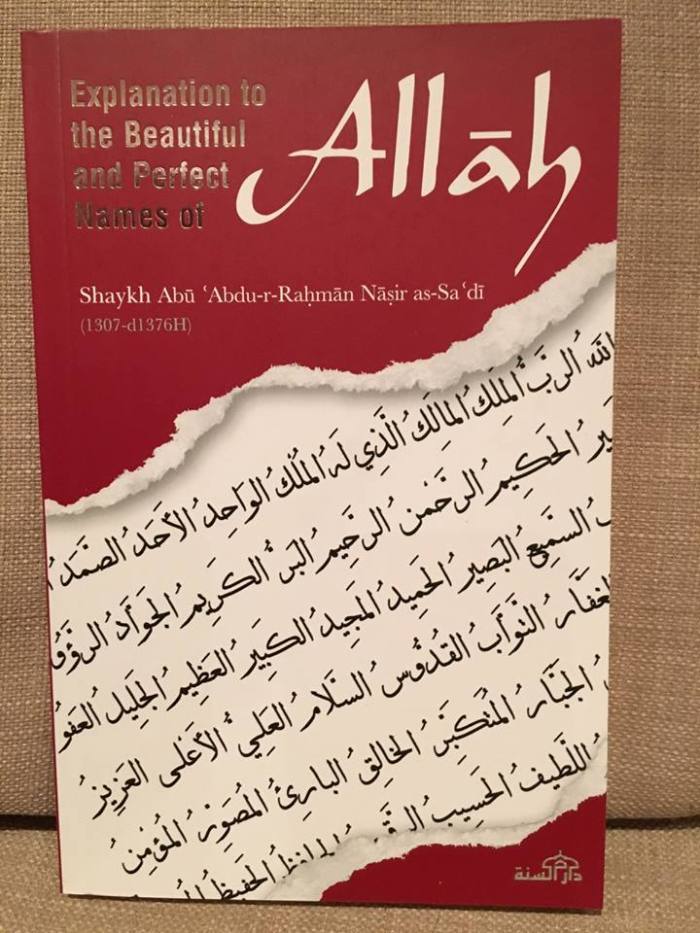 Explanation to
the Beautiful
and Perfect
Names of
Allāh
Shaykh Abū ʿAbdu-r-Raḥmān Nāṣir as-Saʿdī
(1307-d1376H)
الله الرَّبُّ المَلِكُ المَالِكُ الَّذِي لَهُ المُلْكُ الوَاحِدُ الأَحَدُ الصَّمَدُ
الحَكِيمُ الرَّحْمٰنُ الرَّحِيمُ البَرُّ الكَرِيمُ الجَوَادُ الرَّؤُفُ
السَّمِيعُ البَصِيرُ الحَمِيدُ المَجِيدُ الكَبِيرُ العَظِيمُ الجَلِيلُ العَفُوُّ
الغَفَّارُ التَّوَّابُ القُدُّوسُ السَّلَامُ العَلِيُّ الأَعْلَى العَزِيزُ
الجَبَّارُ المُتَكَبِّرُ الخَالِقُ البَارِئُ المُصَوِّرُ المُؤْمِنُ
اللَّطِيفُ الحَسِيبُ
الحَفِيظُ
دار السنة